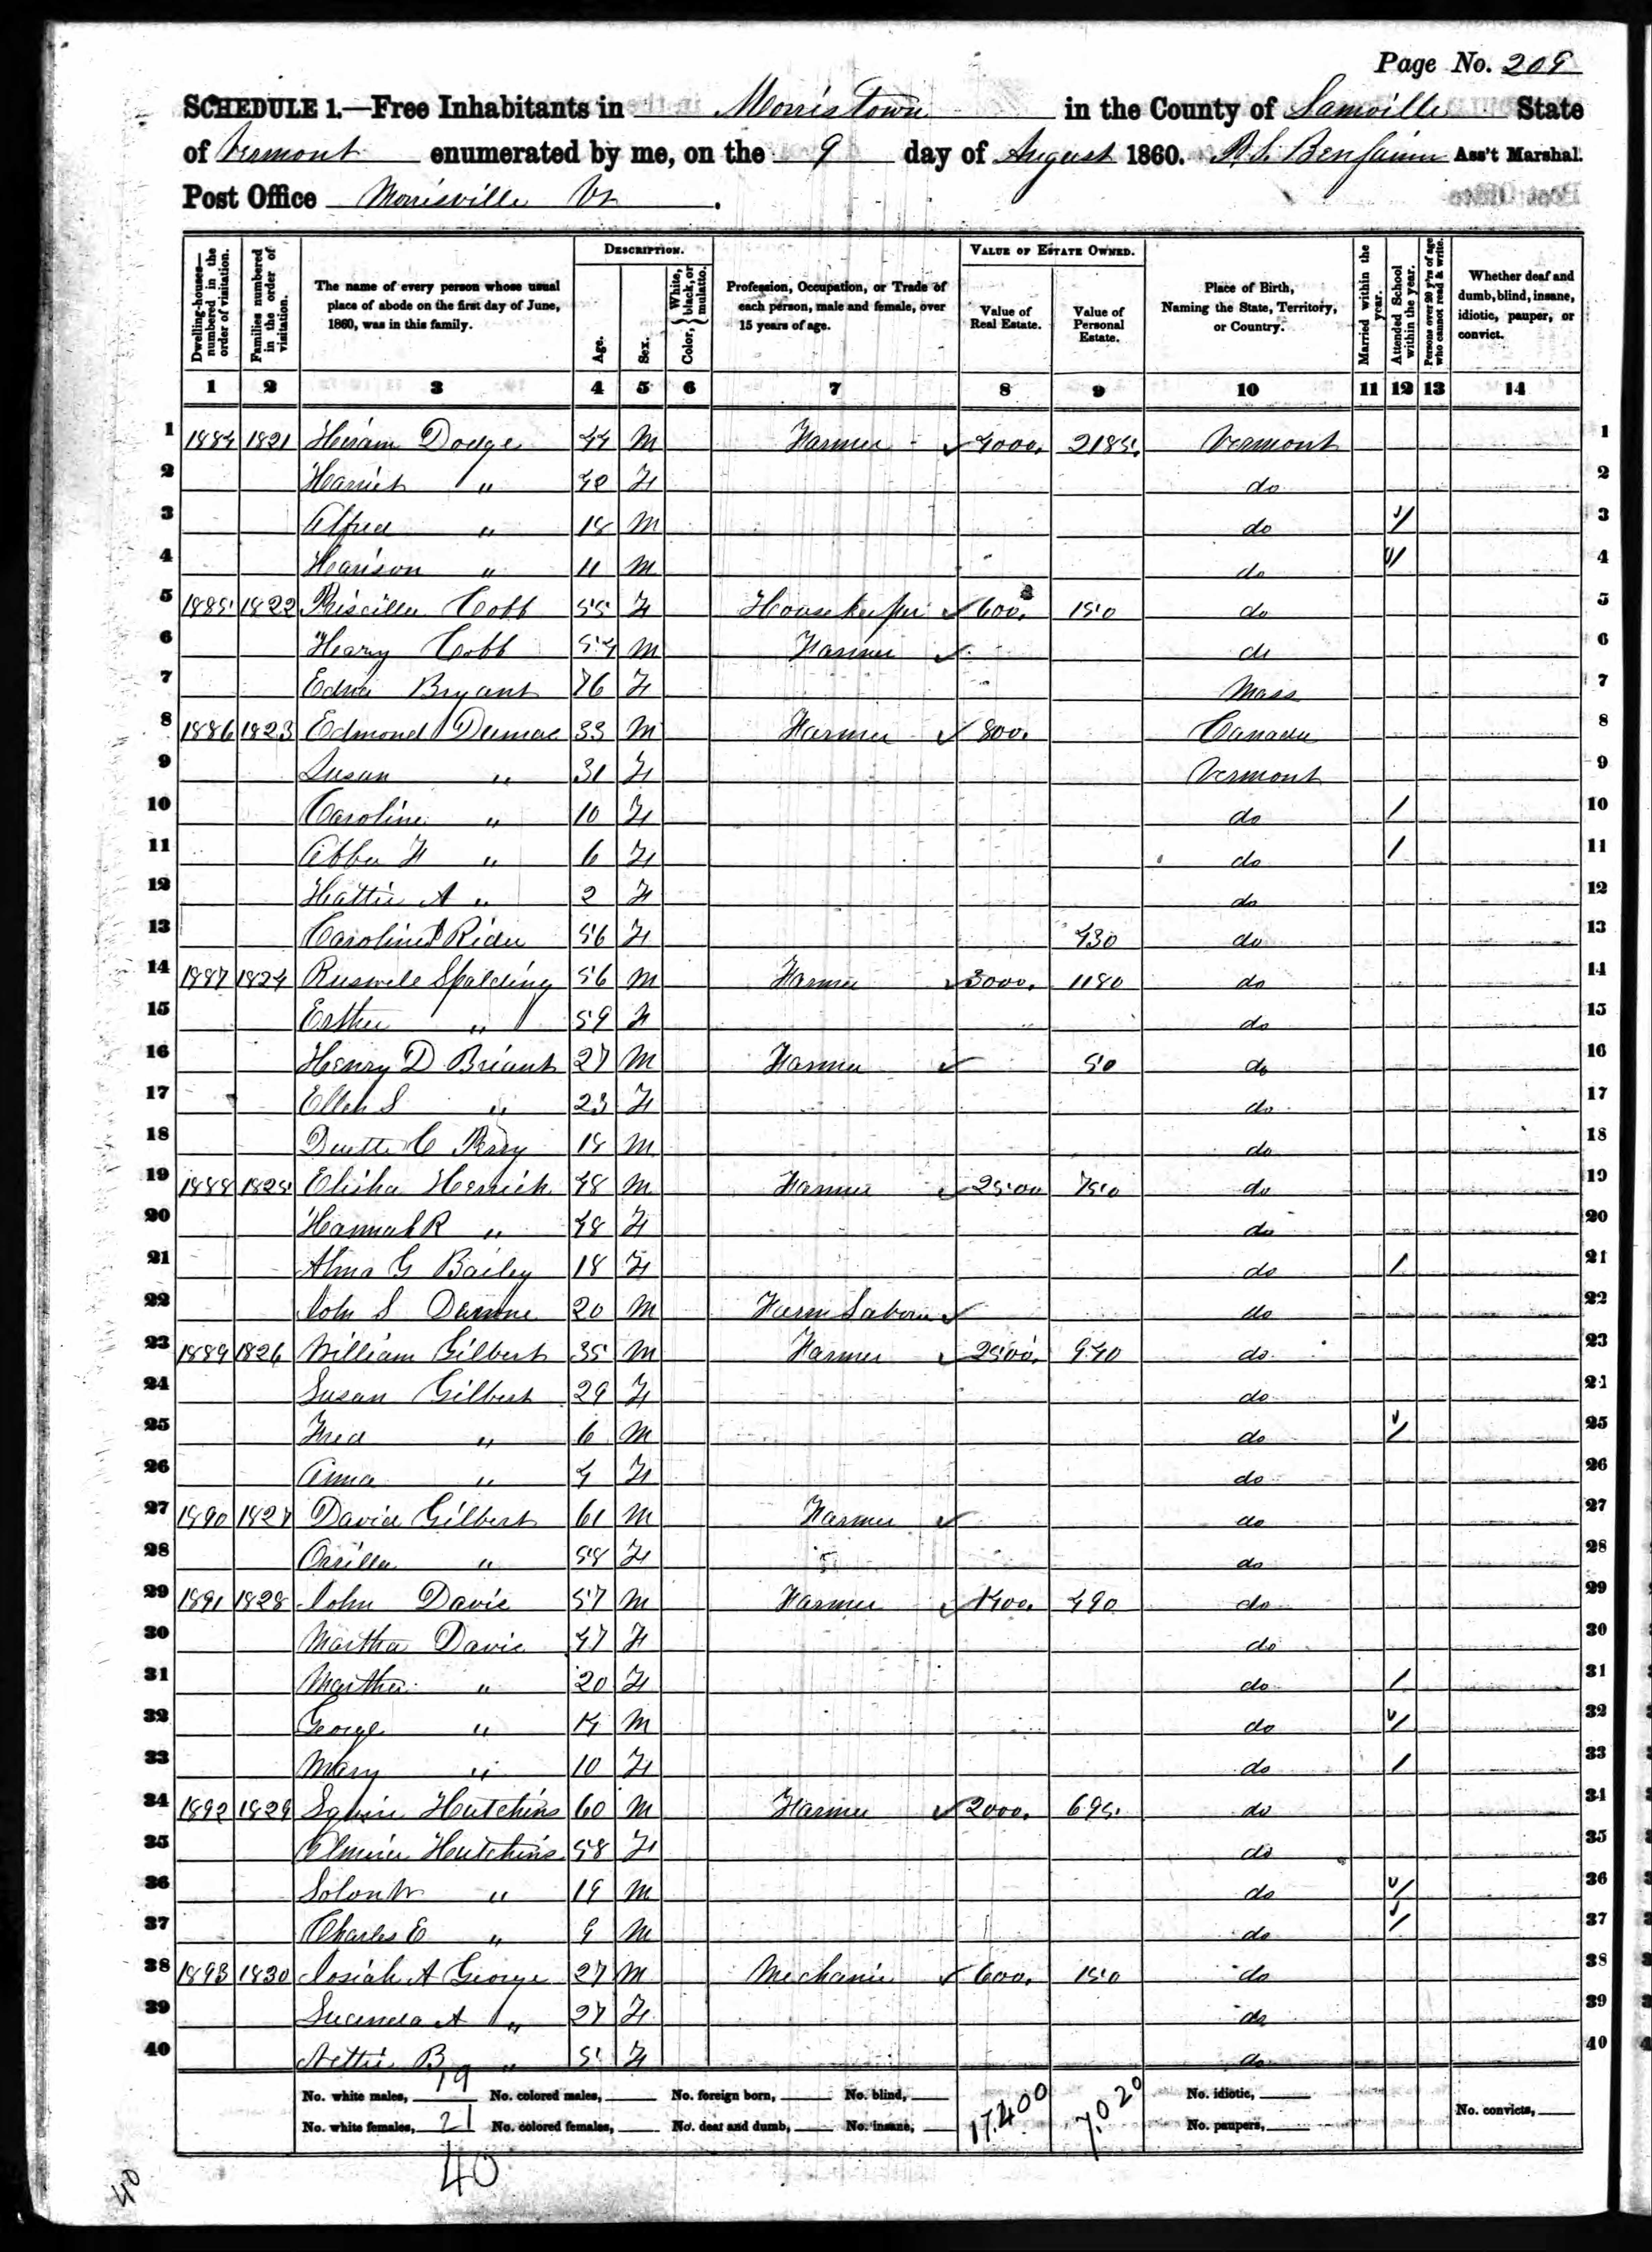 Page No. 209
SCHEDULE 1.—Free Inhabitants in Morristown in the County of Lamoille State
of Vermont enumerated by me, on the 9 day of August 1860. R. S. Benjamin Ass't Marshal.
Post Office Morrisville Vt.
Dwelling-houses— numbered in the order of visitation.
Families numbered in the order of visitation.
The name of every person whose usual place of abode on the first day of June, 1860, was in this family.
DESCRIPTION.
Age.
Sex.
Color, { White, black, or mulatto.
Profession, Occupation, or Trade of each person, male and female, over 15 years of age.
VALUE OF ESTATE OWNED.
Value of Real Estate.
Value of Personal Estate.
Place of Birth, Naming the State, Territory, or Country.
Married within the year.
Attended School within the year.
Persons over 20 y'rs of age who cannot read & write.
Whether deaf and dumb, blind, insane, idiotic, pauper, or convict.
1 2 3 4 5 6 7 8 9 10 11 12 13 14
1 1884 1821 Hiram Dodge 44 M Farmer ✓ 4000. 2185. Vermont 1
2 Harriet " 40 F do 2
3 Alfred " 18 M do / 3
4 Harrison " 11 M do / 4
5 1885 1822 Priscilla Cobb 55 F Housekeeper ✓ 600. 150 do 5
6 Henry Cobb 54 M Farmer ✓ do 6
7 Edna Bryant 76 F Mass 7
8 1886 1823 Edmond 33 M Farmer ✓ 800. Canada 8
9 Susan " 31 F Vermont 9
10 Caroline " 10 F do / 10
11 Abba F " 6 F do / 11
12 Hattie A " 2 F do 12
13 Caroline Rider 56 F 430 do 13
14 1887 1824 Ruswell Spalding 56 M Farmer ✓ 3000. 1180 do 14
15 Esther " 59 F do 15
16 Henry D Briant 27 M Farmer ✓ 50 do 16
17 Ellen S " 23 F do 17
18 C Perry 18 M do 18
19 1888 1825 Elisha Herrick 48 M Farmer ✓ 2500 750 do 19
20 Hannah R " 48 F do 20
21 Alma G Bailey 18 F do / 21
22 John S 20 M Farm Laborer ✓ do 22
23 1889 1826 William Gilbert 35 M Farmer ✓ 2500. 940 do 23
24 Susan Gilbert 29 F do 24
25 Fred " 6 M do / 25
26 Anna " 4 F do 26
27 1890 1827 David Gilbert 61 M Farmer ✓ do 27
28 Orrilla " 58 F do 28
29 1891 1828 John Davis 57 M Farmer ✓ 1400. 490 do 29
30 Martha Davis 47 F do 30
31 Martha " 20 F do / 31
32 George " 14 M do / 32
33 Mary " 10 F do / 33
34 1892 1829 Hutchins 60 M Farmer ✓ 2000. 695. do 34
35 Elmira Hutchins 58 F do 35
36 Solon W " 19 M do / 36
37 Charles E " 9 M do / 37
38 1893 1830 Josiah A George 27 M Mechanic ✓ 600. 150 do 38
39 Lucinda A " 27 F do 39
40 Nettie B " 5 F do 40
No. white males, 19 No. colored males, No. foreign born, No. blind, 17.400 7.020 No. idiotic,
No. white females, 21 No. colored females, No. deaf and dumb, No. insane, No. paupers, No. convicts,
40
40